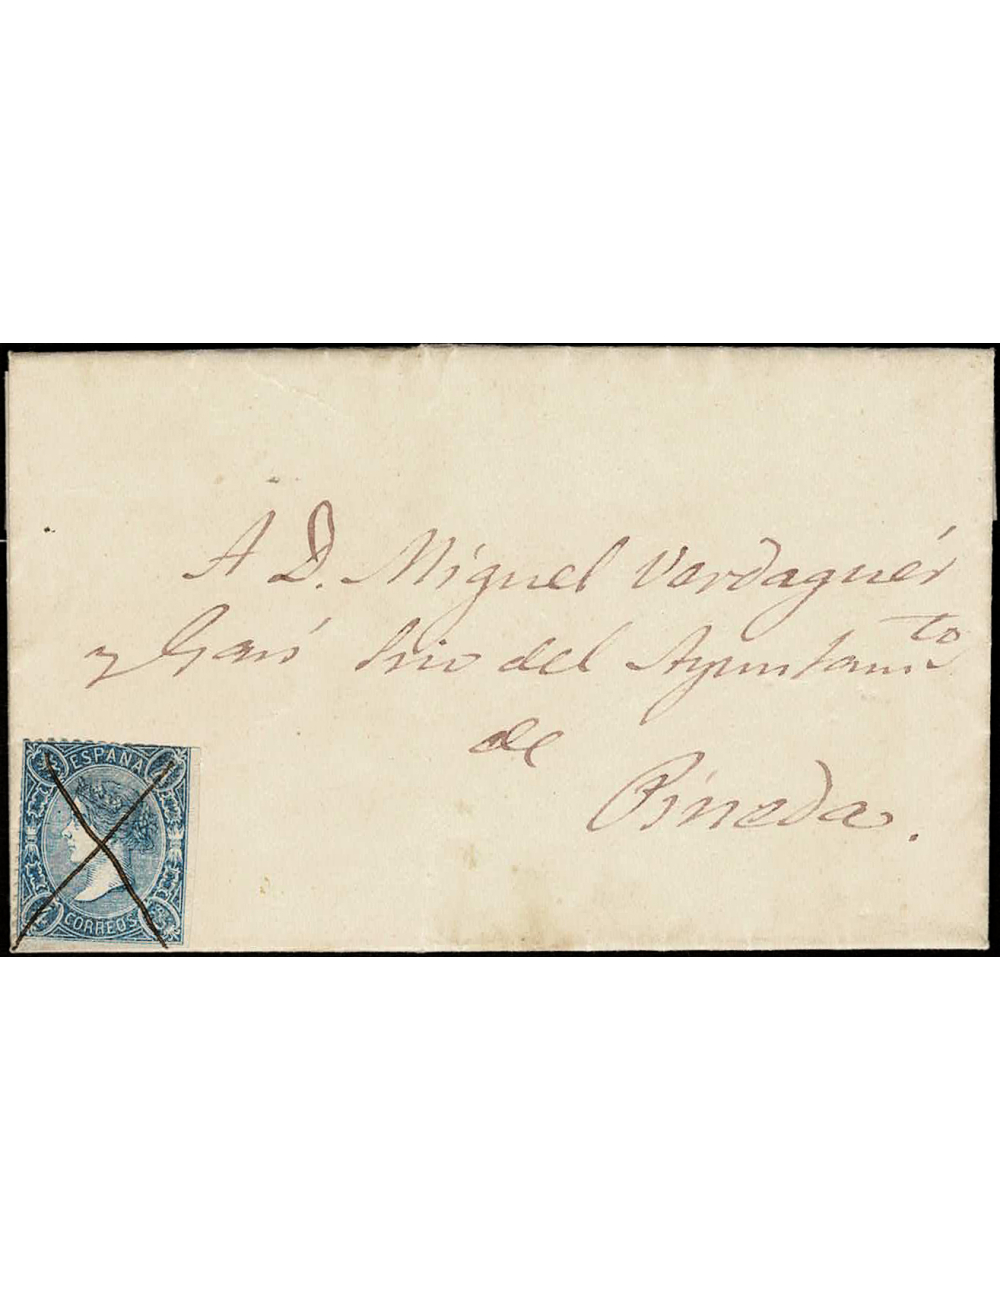 A D. Miguel Verdaguér
y Garí Srio del Ayuntam.to
de
Pineda.
ESPAÑA
CORREOS